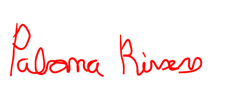 Paloma Rivero